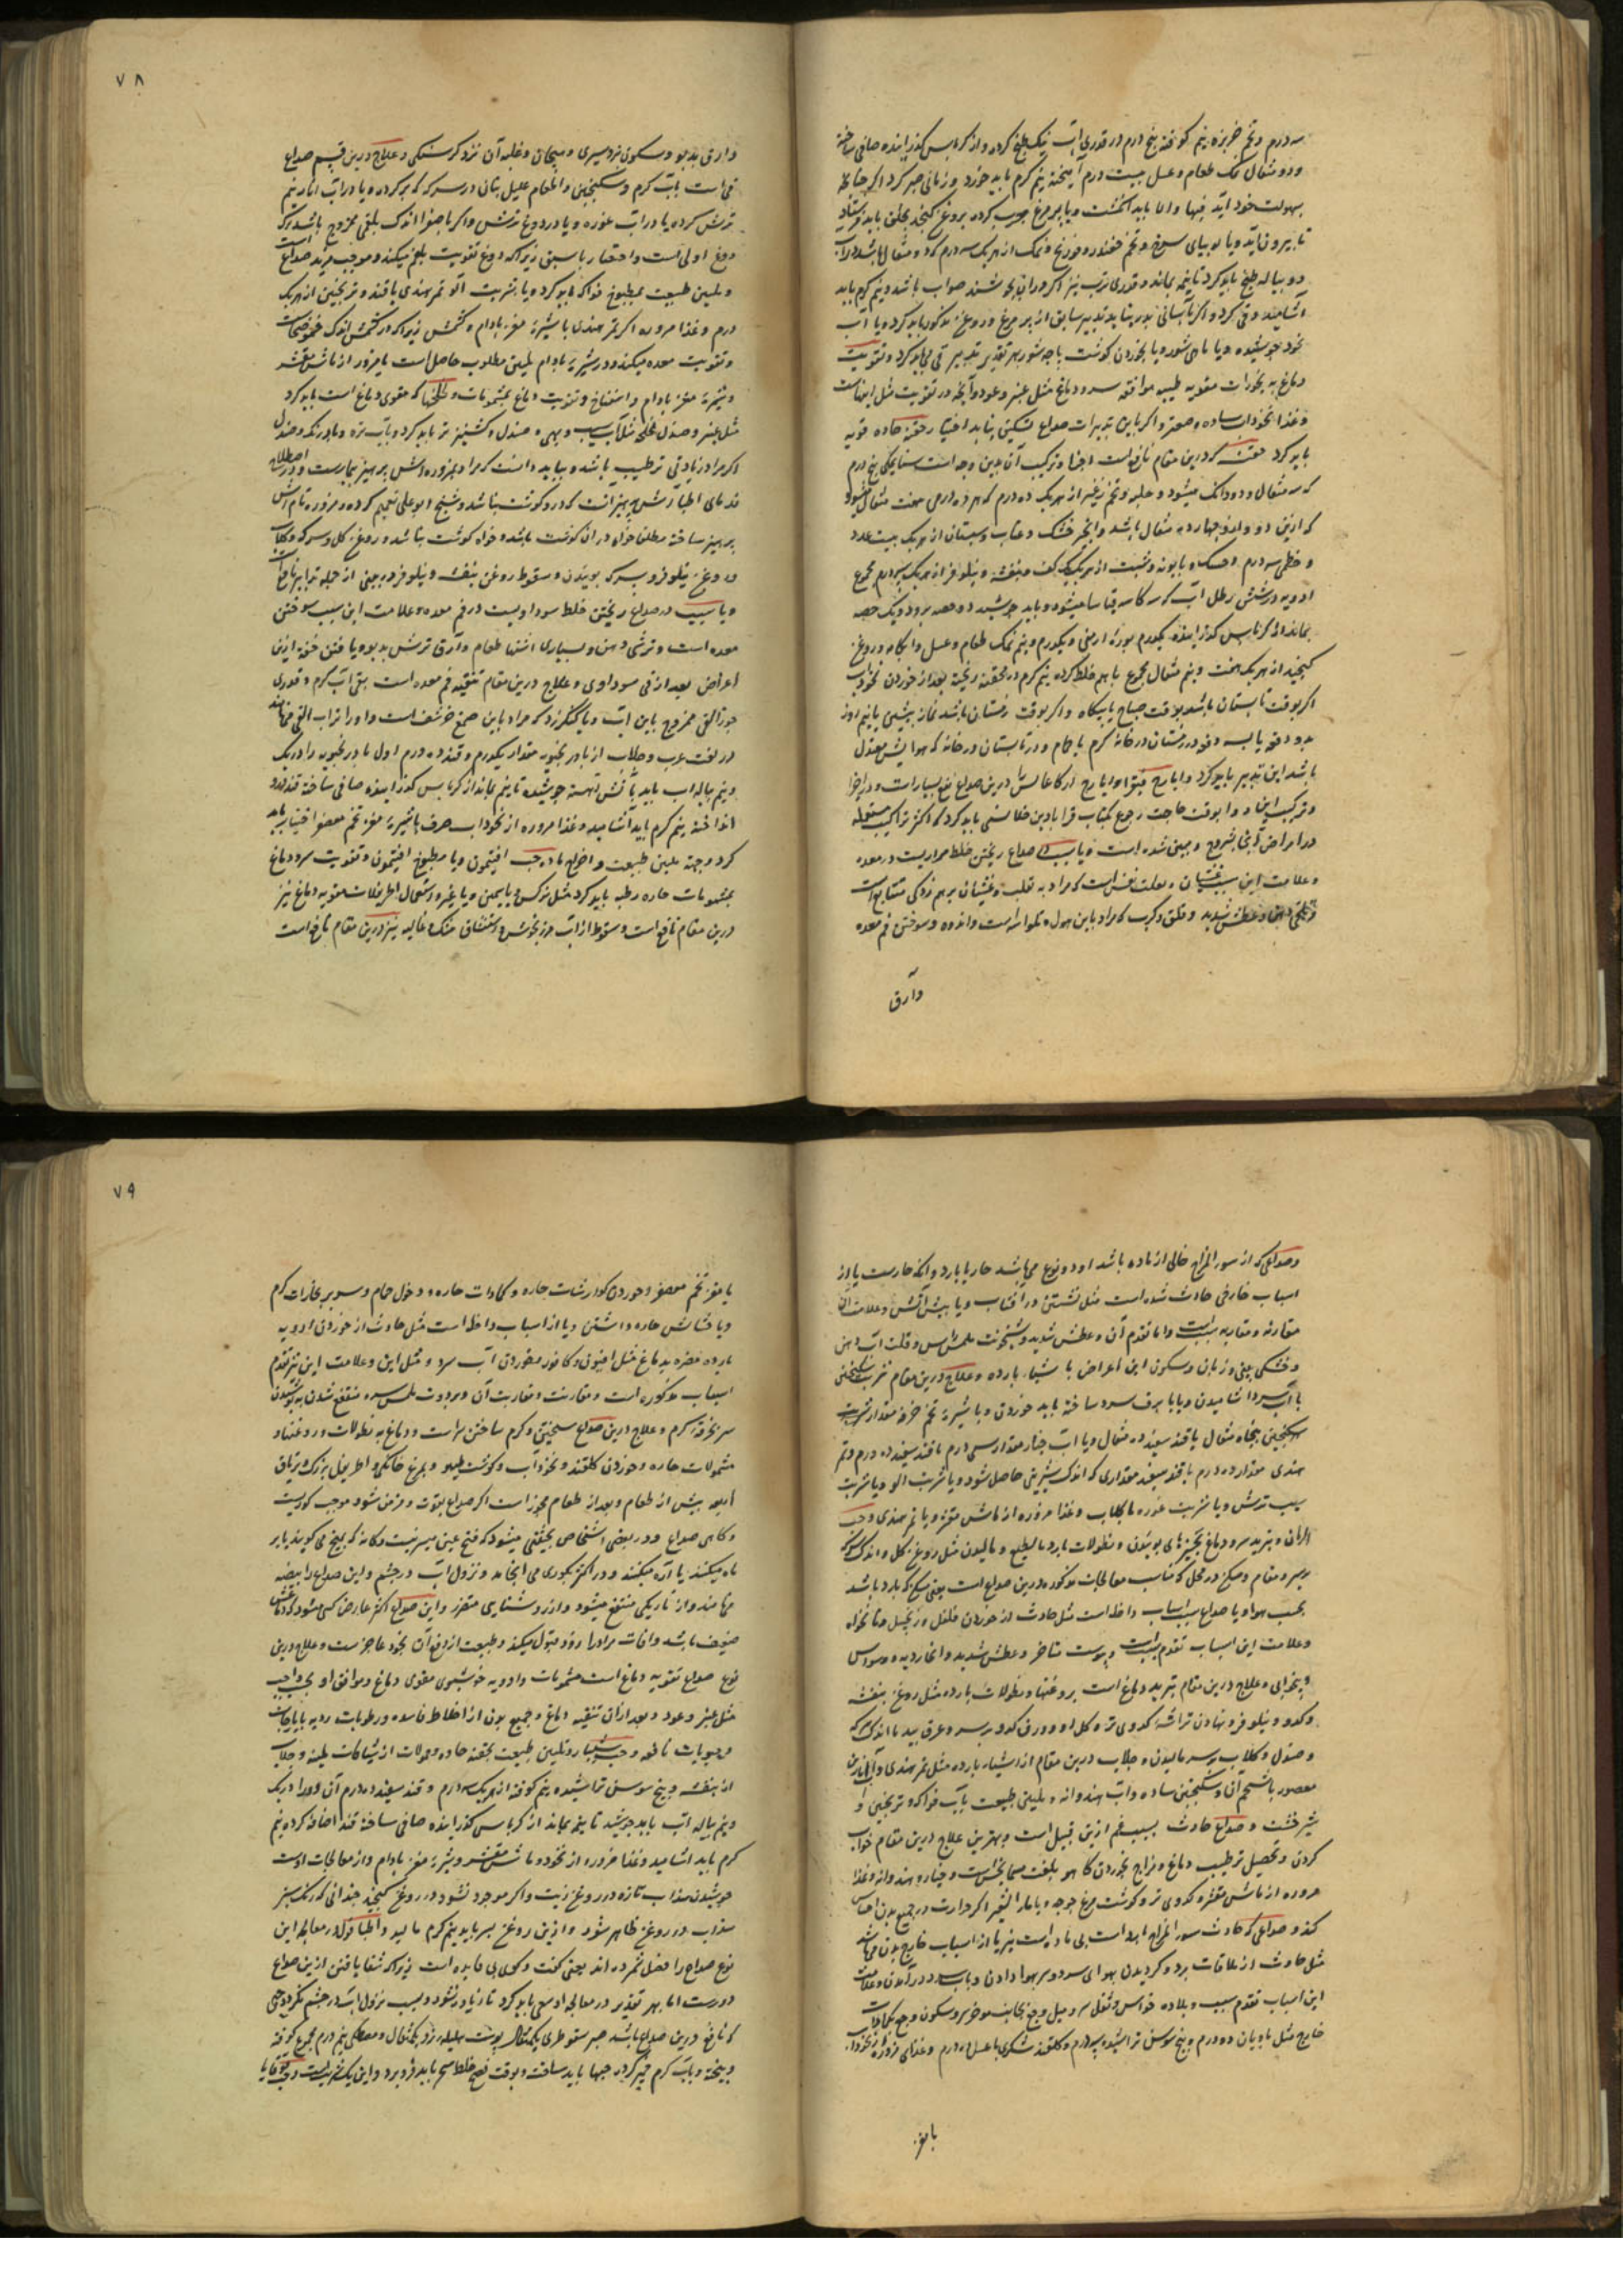 سه درم و تخم خربزه نیم کوفته پنج درم در قدری آب نیک طبخ کرده و از کرباس گذرانیده صافی ساخته
و دو مثقال نمک طعام و عسل بیست درم آمیخته نیم گرم باید خورد و زمانی صبر کرد اگر
بسهولت خود آید فبها والا باید انگشت و یا پر مرغ چرب کرده بروغن کنجد بحلق باید
تا بیرون آید و یا
دو پیاله طبخ باید کرد تا نیمه بماند و قدری ترب نیز اگر در آن بجوشند صواب باشد و نیم گرم باید
آشامید و قی کرد و اگر بآسانی تدبیر سابق از پر مرغ و روغن مذکور باید کرد و یا آب
نخود جوشیده و یا ماهی شور و یا بخوردن گوشت باجه شور بهر تقدیر تدبیر قی باید کرد و تقویت
دماغ به بخورات مقویه طیبه موافقه سر و دماغ مثل عنبر و عود و آنچه در تقویت مثل اینهاست
و غذا نخوداب ساده و اگر باین تدبیرات صداع تسکین نیابد اختیار حقنه حاده قویه
باید کرد حقنه که درین مقام نافع است اجزا و ترکیب آن بدین وجه است سنا مکی پنج درم
که سه مثقال و دو دانگ میشود و حلبه و تخم از هریک ده درم که هر ده درمی هفت مثقال میشود
که ازین دو دارو چهارده مثقال باشد و انجیر خشک و عناب و سپستان از هریک بیست عدد
و خطمی سه درم و حسک و بابونه و شبت از هریک یک کف و بنفشه و نیلوفر از هریک سه درم مجموع
ادویه در شش رطل آب که سه کاسه میشود و باید جوشید دو حصه برود و یک حصه
بماند از کرباس گذرانیده یکدرم بوره ارمنی و یکدرم و نیم نمک طعام و عسل و آبکامه و روغن
کنجد از هریک هفت و نیم مثقال مجموع با هم خلط کرده نیم گرم در محقنه ریخته بعد از خوردن نخوداب
اگر بوقت تابستان باشد بوقت صباح یا پیگاه و اگر بوقت زمستان باشد نماز پیشین یا نیم روز
در زمستان در خانه گرم یا حمام و در تابستان در خانه که هوایش معتدل
باشد این تدبیر باید کرد و ایارج فیقرا و ایارج درین صداع نفع بسیار است و
و ترکیب این دو دوا بوقت حاجت رجوع بکتاب قرابادین باید کرد که اکثر تراکیب مستعمله
در امراض آنجا مشروح و مبین شده است و یا سبب صداع ریختن خلط مراریست در معده
و علامت این سبب غثیان و تقلب نفس است که مراد به تقلب و غثیان برهم زدگی است
و تلخی دهان و عطش شدید و قلق و کرب که مراد باین هول و تلواسه است و اندوه و سوختن فم معده
وآرق
۷۸
و آرق بدبو و سکون نزد سیری و هیجان و غلبه آن نزد گرسنگی و علاج درین قسم صداع
قی است بآب گرم و سکنجبین و اطعام علیل بنان در سرکه تر کرده و یا در آب انار نیم
ترش کرده یا در آب غوره و یا در دوغ ترش و اگر با صفرا اندک بلغمی ممزوج باشد ترک
دوغ اولی است و اقتصار باسبق زیرا که دوغ تقویت بلغم میکند و موجب مزید صداع است
و تلیین طبیعت بمطبوخ فواکه باید کرد و یا بشربت آلو و تمر هندی با قند و ترنجبین از هریک
درم و غذا مزوره اگر تمر هندی با شیره مغز بادام و کشمش زیرا که در کشمش اندک
و تقویت معده میکند و در شیره بادام تلیین مطلوب حاصل است یا مزوره از ماش مقشر
و شیره مغز بادام و اسفناخ و تقویت دماغ بمشمومات و که مقوی دماغ است باید کرد
مثل عنبر و صندل مثل آب سیب و بهی و صندل و کشنیز تر باید کرد و بآب تره و بادرنگ و صندل
اگر مراد زیادتی ترطیب باشد و بباید دانست که مراد بمزوره آش پرهیز بیمارست و در اصطلاح
قدمای اطبا آش پرهیز آنست که درو گوشت نباشد و شیخ ابو علی تعمیم کرده و مزوره نام آش
پرهیز ساخته مطلقا خواه در آن گوشت باشد و خواه گوشت نباشد و روغن گل و سرکه و گلاب
و روغن نیلوفر و سرکه بوئیدن و سقوط روغن بنفشه و نیلوفر در بینی از جمله تدابیر نافع
و یا سبب در صداع ریختن خلط سوداویست در فم معده و علامت این سبب سوختن
معده است و ترشی دهن و بسیاری اشتها طعام و آرق ترش بدبو و یافتن خفت ازین
اعراض بعد از قی سوداوی و علاج درین مقام تنقیه فم معده است بقی آب گرم و قدری
جوز القی ممزوج باین آب و یا کنگرزد که مراد باین صمغ حرشف است و او را تراب القی خوانند
در لغت عرب و جلاب از بادرنجبویه مقدار یکدرم و قند ده درم اول بادرنجبویه را در یک
و نیم پیاله آب باید بآتش آهسته جوشیده تا نیم بماند از کرباس گذرانیده صافی ساخته قند درو
انداخته نیم گرم باید آشامید و غذا مزوره از نخوداب صرف یا شیره مغز تخم معصفر اختیار باید
کرد و جهة تلیین طبیعت و اخراج ماده حب افتیمون و یا مطبوخ افتیمون و تقویت سر و دماغ
بمشمومات حاره رطبه باید کرد مثل نرگس و یاسمین و یا غیره و استعمال اطریفلات مقویه دماغ نیز
درین مقام نافع است و سعوط از آب مرزنجوش و استنشاق مشک و غالیه نیز درین مقام نافع است
وصداعی که از سوء المزاج خالی از ماده باشد او دو نوع میباشد حار یا بارد و آنکه حارست یا از
اسباب خارجی حادث شده است مثل نشستن در آفتاب و یا پیش آتش و علامت آن
مقارنه و مقاربه سبب است و یا تقدم آن و عطش شدید و سخونت ملمس راس و قلت آب دهن
و خشکی بینی و زبان و سکون این اعراض با شیاء بارده و علاج درین مقام شربت سکنجبین
با آب سرد آشامیدن و یا با برف سرد ساخته باید خوردن و یا شیره تخم خرفه مقدار شربت
سکنجبین پنجاه مثقال یا قند سفید ده مثقال و یا آب خیار مقدار سی درم با قند سفید ده درم و تمر
هندی مقدار ده درم با قند سفید مقداری که اندک شیرینی حاصل شود و یا شربت آلو و یا شربت
سیب ترش و یا شربت غوره با گلاب و غذا مزوره از ماش مقشر و یا تمر هندی و حب
الرمان و تبرید سر و دماغ بچیزهای بوئیدن و نطولات بارد بالطبع و مالیدن مثل روغن گل و اندک سرکه
بر سر و مقام و مسکن در محل که مناسب معالجات مذکوره درین صداع است یعنی مسکن که بارد باشد
بحسب هوا و یا صداع بسبب اسباب داخله است مثل حادث از خوردن فلفل و زنجبیل و نانخواه
و علامت این اسباب تقدم سبب است و یبوست مناخر و عطش شدید و افکار ردیه و وسواس
و بیخوابی و علاج درین مقام تبرید دماغ است بروغنها و نطولات بارده مثل روغن بنفشه
و کدو و نیلوفر و نهادن تراشه کدوی تر و گل او و ورق کدو بر سر و عرق بید با اندک سرکه
و صندل و گلاب بر سر مالیدن و جلاب درین مقام از اشیاء بارده مثل تمر هندی و آب انارین
معصور با شحم آن و سکنجبین ساده و آب هندوانه و تلیین طبیعت بآب فواکه و ترنجبین و
شیرخشت و صداع حادث بسبب غم ازین قبیل است و بهترین علاج درین مقام خواب
کردن و تحصیل ترطیب دماغ و مزاج بخوردن کاهو است و خیار و هندوانه و غذا
مزوره از ماش مقشر و کدوی تر و گوشت مرغ جوجه و یا ماء الشعیر اگر حرارت در جمیع بدن احساس
کند و صداعی که حادث سوء المزاج بارد است بی ماده است نیز یا از اسباب خارج بدن می باشد
مثل حادث از ملاقات برد و گردیدن بهوای سرد و سر بهوا دادن و بآب سرد درآمدن و علامت
این اسباب تقدم سبب و بلاده حواس و ثقل سر و میل وجع بجانب موخر سر و سکون وجع بکمادات
خارج مثل بادیان دو درم و بیخ سوسن تراشیده سه درم و گلقند شکری یا عسلی ده درم و غذای مزوره از نخوداب
بامغز
۷۹
یا مغز تخم معصفر و خوردن گوارشات حاره و کمادات حاره و دخول حمام و سر بر بخارات گرم
و یا حشایش حاره داشتن و یا از اسباب داخله است مثل حادث از خوردن ادویه
بارده مضره بدماغ مثل افیون و کافور و خوردن آب سرد و مثل این و علامت این نیز تقدم
اسباب مذکوره است و مقارنت و مقاربت آن و برودت ملمس سر و منتفع شدن به پوشیدن
سر بخرقه گرم و علاج درین صداع تسخین و گرم ساختن سر است و دماغ به نطولات و روغنها و
مشمولات حاره و خوردن گلقند و نخوداب و گوشت طیهو و مرغ خانگی و اطریفل بزرگ و تریاق
اربعه پیش از طعام و بعد از طعام مجوز است اگر صداع بقوت و مزمن شود موجب کوریست
و گاهی صداع و در بعضی اشخاص بحیثتی میشود که فتح عین میسر نیست و گانه که بمیخ می کوبند یا بر
ماه میکنند یا اره میکنند و در اکثر بکوری می انجامد و نزول آب در چشم و این صداع را بیضه
می نامند و از تاریکی منتفع میشود و از روشنایی متضرر و این صداع اکثر عارض کسی میشود که دماغش
ضعیف باشد و آفات مرادرا زود قبول میکند و طبیعت از دفع آن بخود عاجز ست و علاج درین
نوع صداع تقویه دماغ است بمشمومات و ادویه خوشبوی مقوی دماغ و موافق او
مثل عنبر و عود و بعد از آن تنقیه دماغ و جمیع بدن از اخلاط فاسده و رطوبات ردیه بایارجات
و حبوبات نافعه و حب شبیار و تلیین طبیعت بحقنه حاده و حمولات از شیافات ملینه و جلاب
از بنفشه و بیخ سوسن تراشیده نیم کوفته از هریک سه درم و قند سفید ده درم آن دو را در یک
و نیم پیاله آب باید جوشید تا نیم بماند از کرباس گذرانیده صافی ساخته قند اضافه کرده نیم
گرم باید آشامید و غذا مزوره از نخود و ماش مقشر و شیره مغز بادام و از معالجات اوست
جوشیدن سداب تازه در روغن زیت و اگر موجود نشود در روغن کنجد چندانی که رنگ سبز
سداب در روغن ظاهر شود و ازین روغن بسر باید نیم گرم مالید و اطبا قول در معالجه این
نوع صداع را فضل شمرده اند یعنی گفت و گوی بی فایده است زیرا که شفا یافتن ازین صداع
دورست اما بهر تقدیر در معالجه او سعی باید کرد تا زیاد نشود و بسبب نزول آب در چشم نگردد و حبی
که نافع درین صداع باشد صبر سقوطری یکمثقال پوست هلیله زرد یکمثقال و مصطکی نیم درم مجموع کوفته
و بیخته و بآب گرم خمیر کرده حبها باید ساخت و بوقت نصح خلط صبح باید فرو برد و این یک شربت است و حب قوقایا